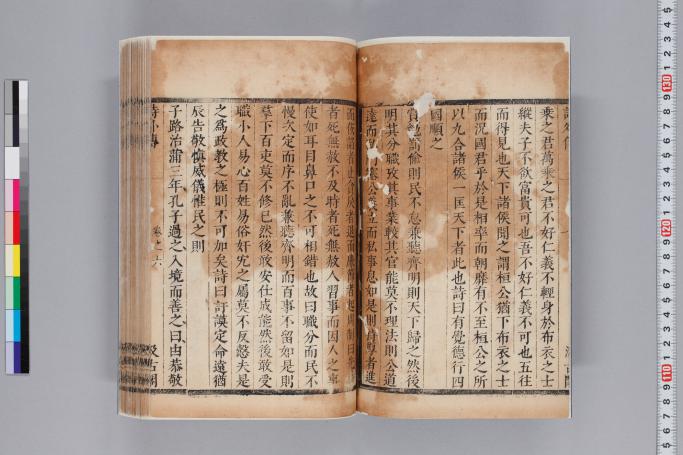 乘之君萬乘之君不好仁義不輕身於布衣之士
縱夫子不欲富貴可也吾不好仁義不可也五往
而得見也天下諸侯聞之謂桓公猶下布衣之士
而況國君乎於是相率而朝靡有不至桓公之所
以九合諸侯一匡天下者此也詩曰有覺德行四
國順之
賞 罰偷則民不怠兼聽齊明則天下歸之然後
明其分職攷其事業較其官能莫不理法則公道
達而 公義立而私事息如是則 厚者進
而佞諂者止貪戾者退而廉節者起
者死無赦不及時者死無赦人習事而因人之事
使如耳目鼻口之不可相錯也故曰職分而民不
慢次定而序不亂兼聽齊明而百事不留如是則
羣下百吏莫不修已然後敢安仕成能然後敢受
職小人易心百姓易俗奸宄之屬莫不反慤夫是
之爲政教之極則不可加矣詩曰訏謨定命遠猶
辰告敬慎威儀惟民之則
子路治蒲三年孔子過之入境而善之曰由恭敬
詩外傳
卷之六
汲古閣
130
120
110